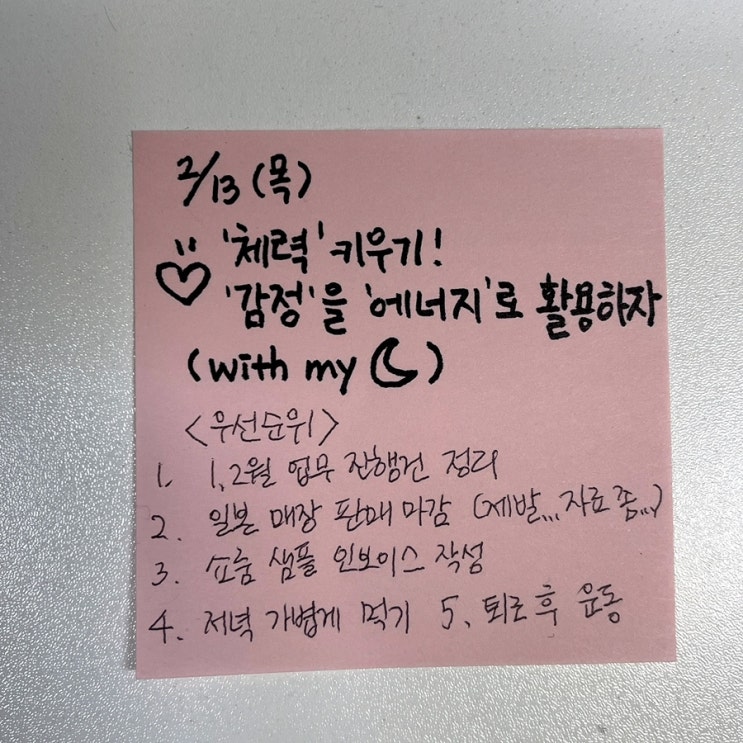 2/13 (목)
'체력' 키우기!
'감정'을 '에너지'로 활용하자
(with my )
<우선순위>
1. 1,2월 업무 진행건 정리
2. 일본 매장 판매 마감 (제발,,, 자료 좀,,,)
3. 쇼룸 샘플 인보이스 작성
4. 저녁 가볍게 먹기 5. 퇴근 후 운동